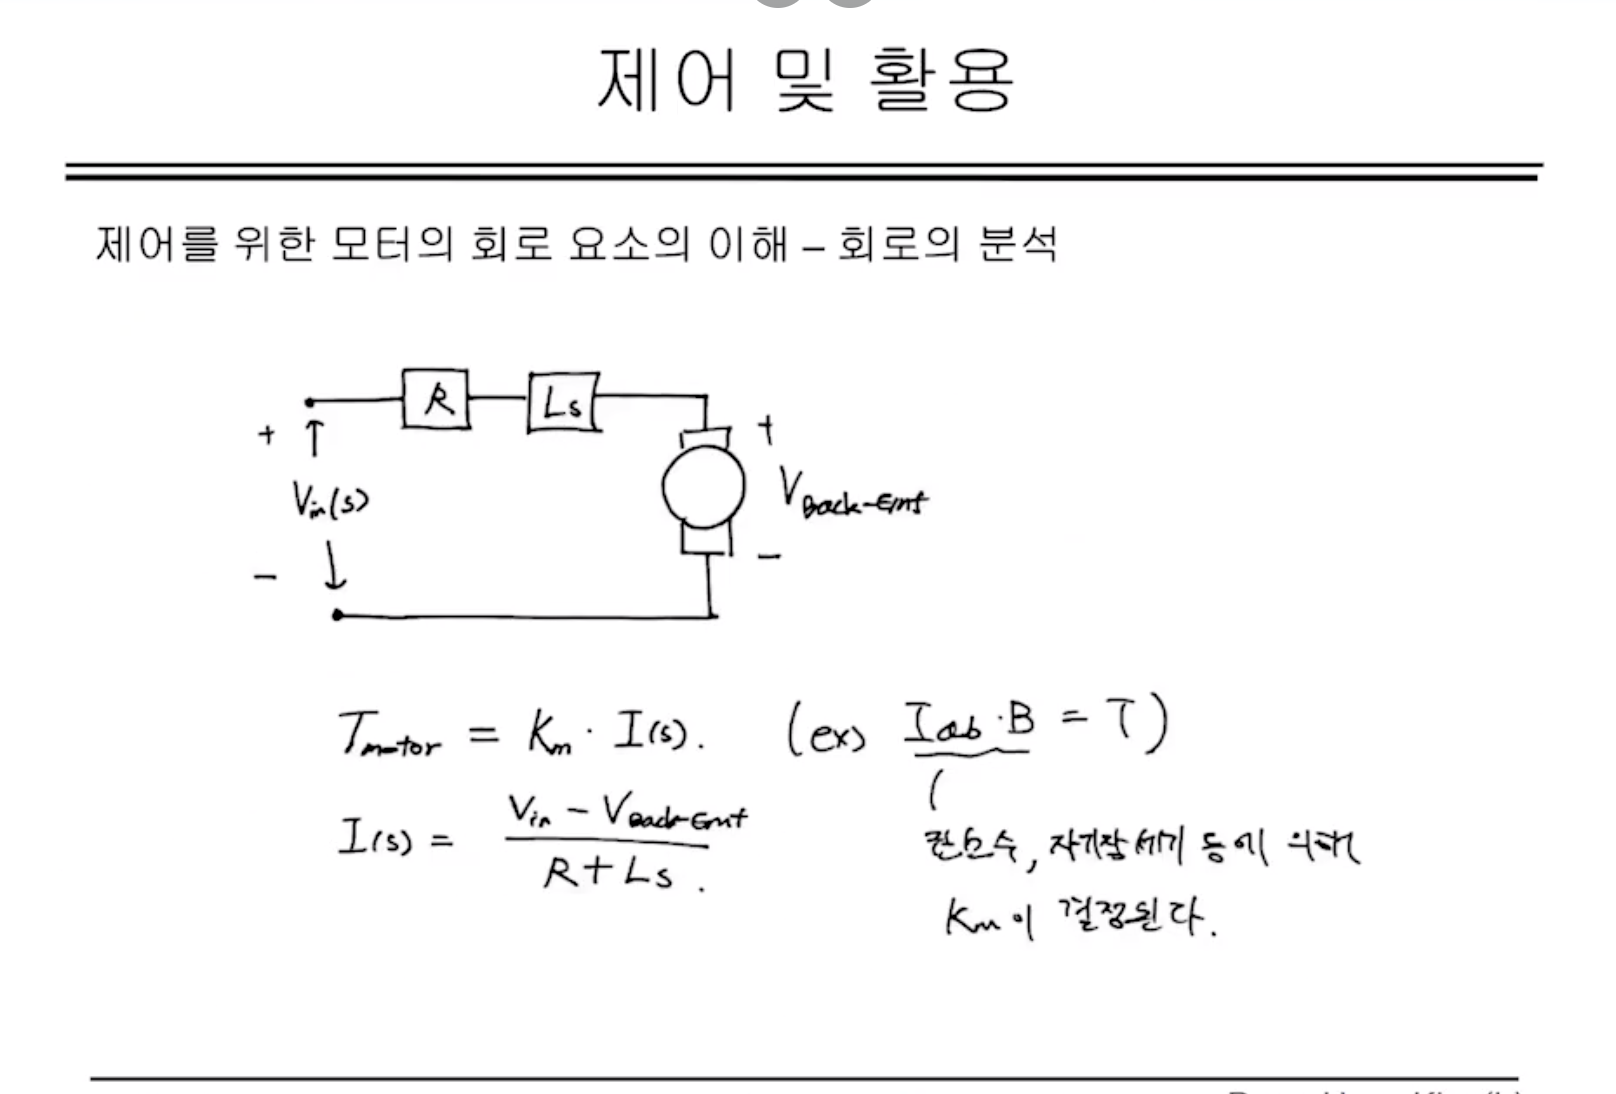 제어 및 활용
제어를 위한 모터의 회로 요소의 이해 – 회로의 분석
R
Ls
+
+
Vin(s)
VBack-Emf
-
-
Tmotor = Km · I(s). (ex) Iab·B = T)
I(s) = Vin - VBack-Emf
R + Ls.
권선수, 자기장 세기 등에 의해
Km이 결정된다.